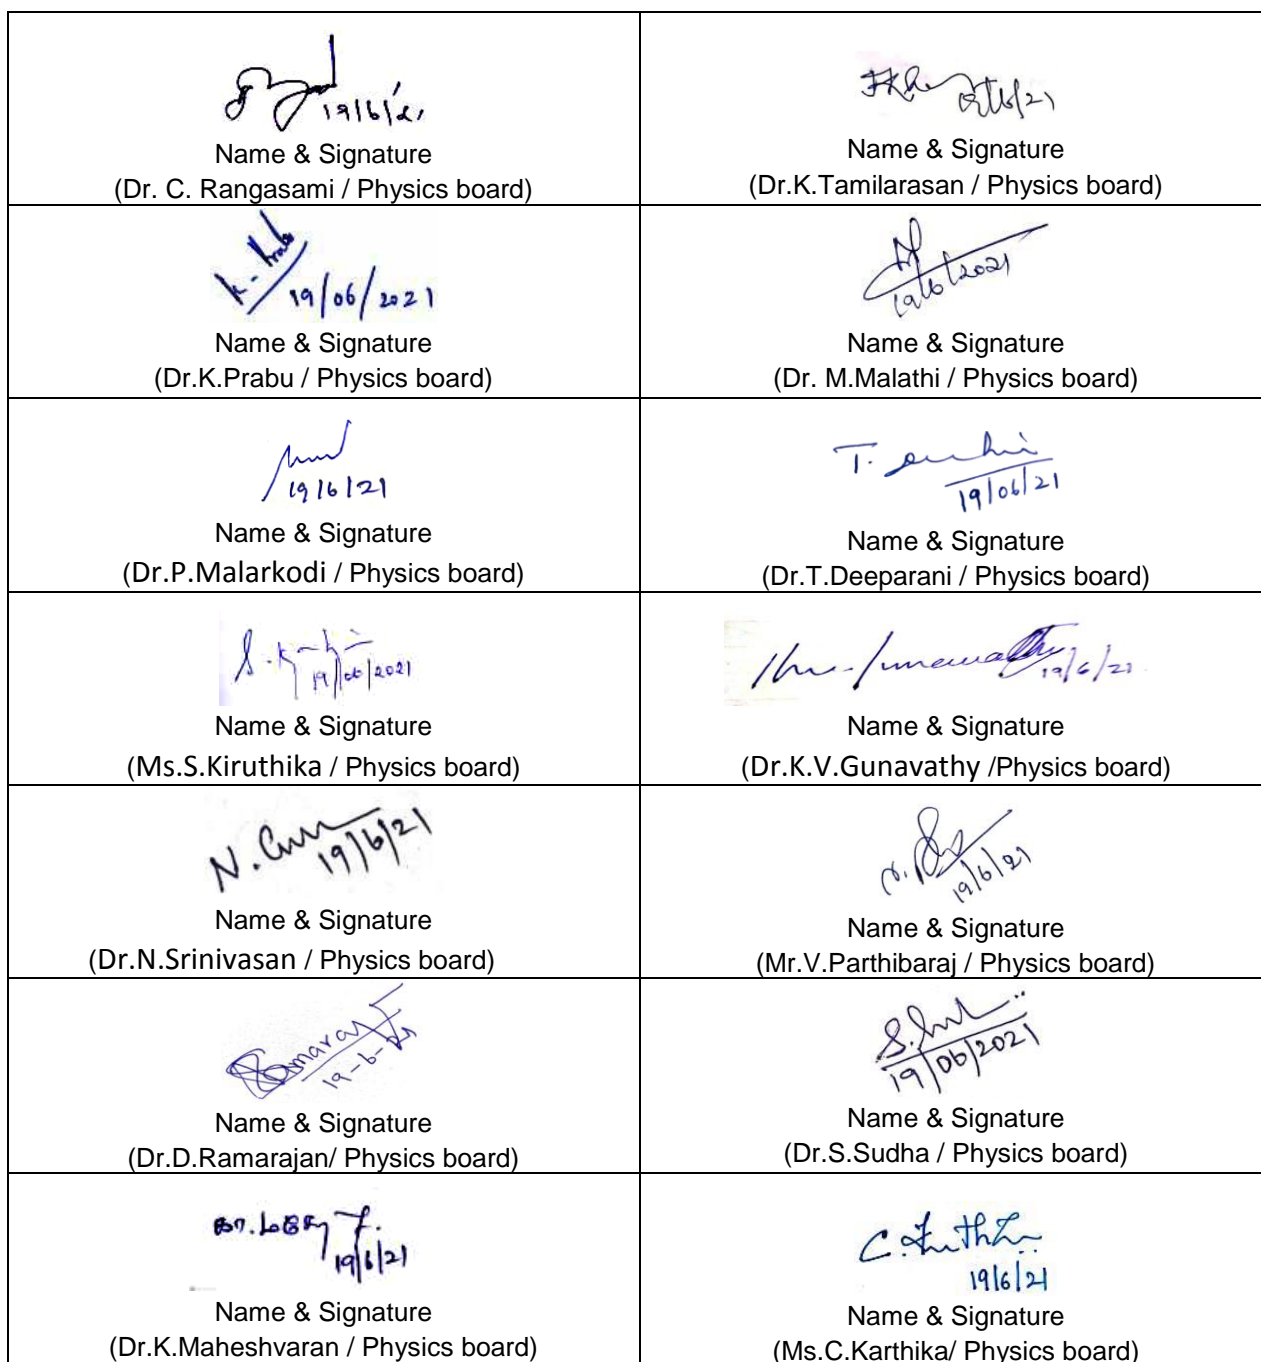 19/6/21
Name & Signature
(Dr. C. Rangasami / Physics board)
19/6/21
Name & Signature
(Dr.K.Tamilarasan / Physics board)
K. Prabu
19/06/2021
Name & Signature
(Dr.K.Prabu / Physics board)
19/6/2021
Name & Signature
(Dr. M.Malathi / Physics board)
19/6/21
Name & Signature
(Dr.P.Malarkodi / Physics board)
T.
19/06/21
Name & Signature
(Dr.T.Deeparani / Physics board)
S.
19/06/2021
Name & Signature
(Ms.S.Kiruthika / Physics board)
19/6/21
Name & Signature
(Dr.K.V.Gunavathy /Physics board)
N.
19/6/21
Name & Signature
(Dr.N.Srinivasan / Physics board)
19/6/21
Name & Signature
(Mr.V.Parthibaraj / Physics board)
19-6-21
Name & Signature
(Dr.D.Ramarajan/ Physics board)
S.
19/06/2021
Name & Signature
(Dr.S.Sudha / Physics board)
கா.
19/6/21
Name & Signature
(Dr.K.Maheshvaran / Physics board)
C.
19/6/21
Name & Signature
(Ms.C.Karthika/ Physics board)